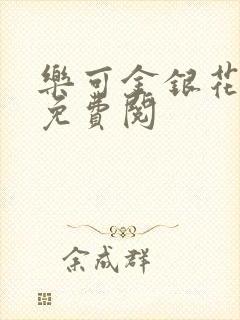 樂可金銀花
免費閱
余成群